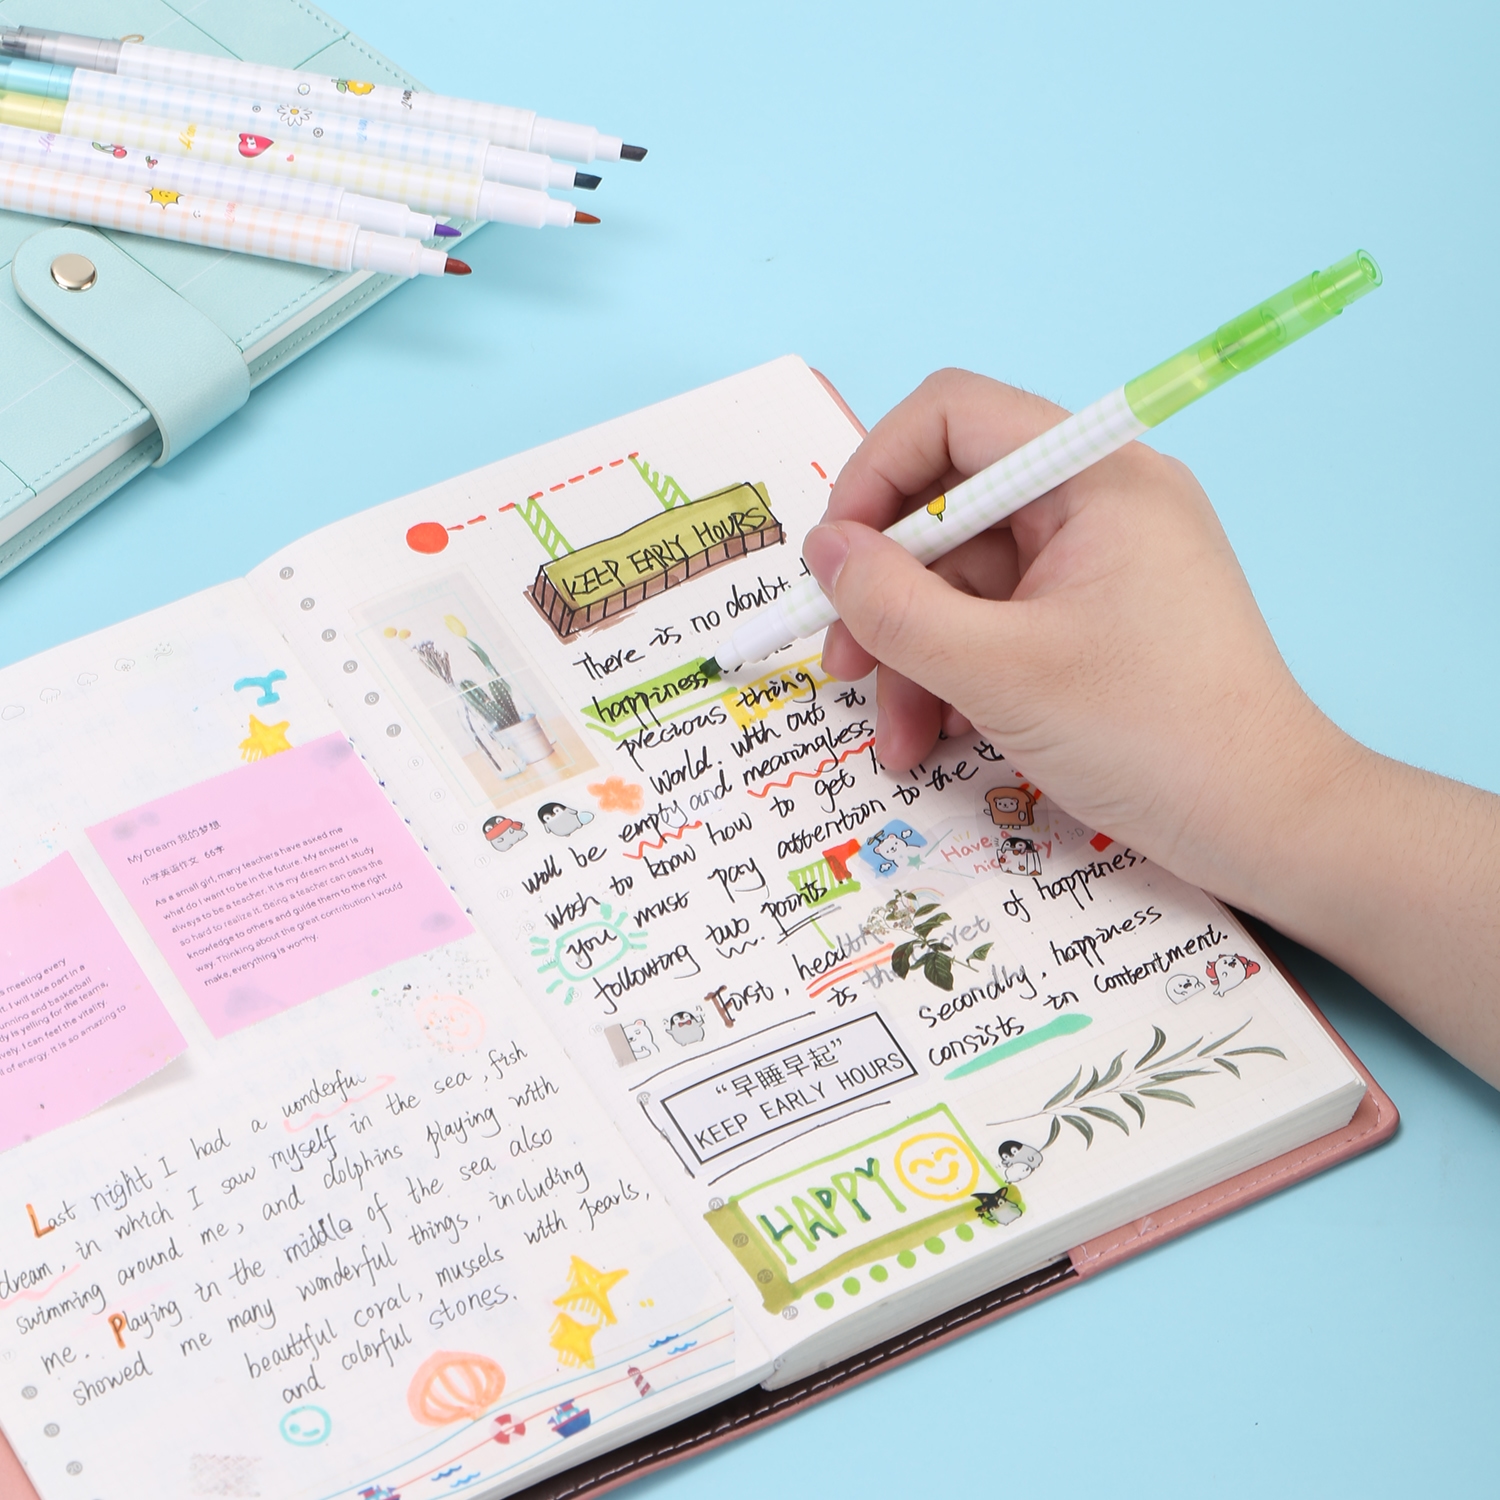 My Dream 我的梦想
小学英语作文 66字
As a small girl, many teachers have asked me
what do I want to be in the future. My answer is
always to be a teacher. It is my dream and I study
so hard to realize it. Being a teacher can pass the
knowledge to others and guide them to the right
way. Thinking about the great contribution I would
make, everything is worthy.
s meeting every
t. I will take part in a
unning and basketball
dy is yelling for the teams,
vely. I can feel the vitality
d of energy. It is so amazing to
Last night I had a wonderful
dream, in which I saw myself in the sea, fish
swimming around me, and dolphins playing with
me. Playing in the middle of the sea also
showed me many wonderful things, including
beautiful coral, mussels with pearls,
and colorful stones.
KEEP EARLY HOURS
There is no doubt
happiness
precious thing
world. With out it
will be empty and meaningless
wish to know how to get
you must pay attention to the
following two points
First, health is the secret of happiness
Secondly, happiness
consists in contentment.
Have a
nice day!
“早睡早起”
KEEP EARLY HOURS
HAPPY